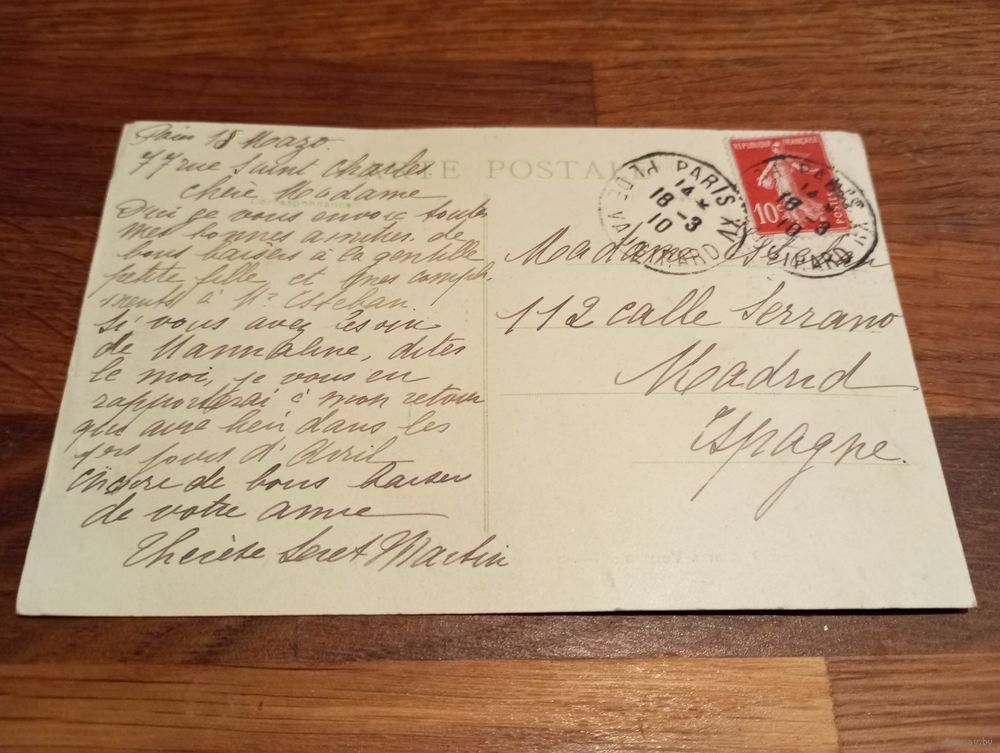 Paris 18 Marzo.
77 rue Saint Charles
CARTE POSTALE
Correspondance
Chère Madame
Oui je vous envoie toutes
mes bonnes amitiés. de
bons baisers à la gentille
petite fille et mes compli
ments à Mr Esteban
Si vous avez besoin
de Mannaline, dites
le moi, je vous en
rapporterai à mon retour
qui aura lieu dans les
1ers jours d'Avril
Encore de bons baisers
de votre amie
Thérèse Seret Martin
REPUBLIQUE FRANÇAISE
10c
POSTES
PARIS XV
14
18 -3
10
R. DE VAUGIRARD
PARIS XV
14
18 -3
10
Madame Esteban
112 calle Serrano
Madrid
Espagne.